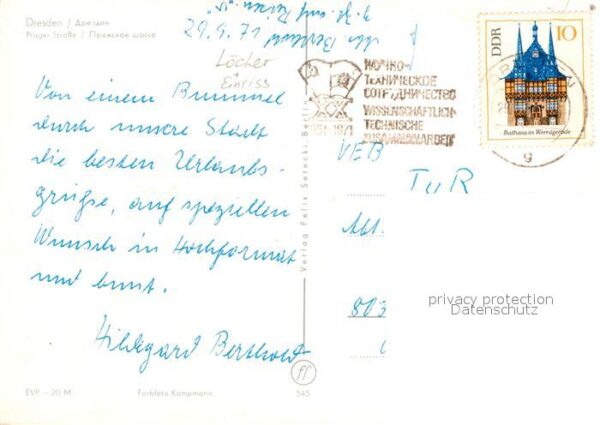 Dresden / Дрезден
Prager Straße / Пражское шоссе
29.9.71
Löcher
+
Einriss
Von einem Bummel
durch unsere Stadt
die besten Urlaubs-
grüße, auf speziellen
Wunsch in Hochformat
und bunt.
Hildegard Berthold
EVP – 20 M
Farbfoto Kampmann
545
Verlag Felix Setecki, Berlin
НАУЧНО-
ТЕХНИЧЕСКОЕ
СОТРУДНИЧЕСТВО
WISSENSCHAFTLICH-
TECHNISCHE
ZUSAMMENARBEIT
XX
DDR
10
Rathaus in Wernigerode
g
VEB
TuR
Abt.
803
privacy protection
Datenschutz